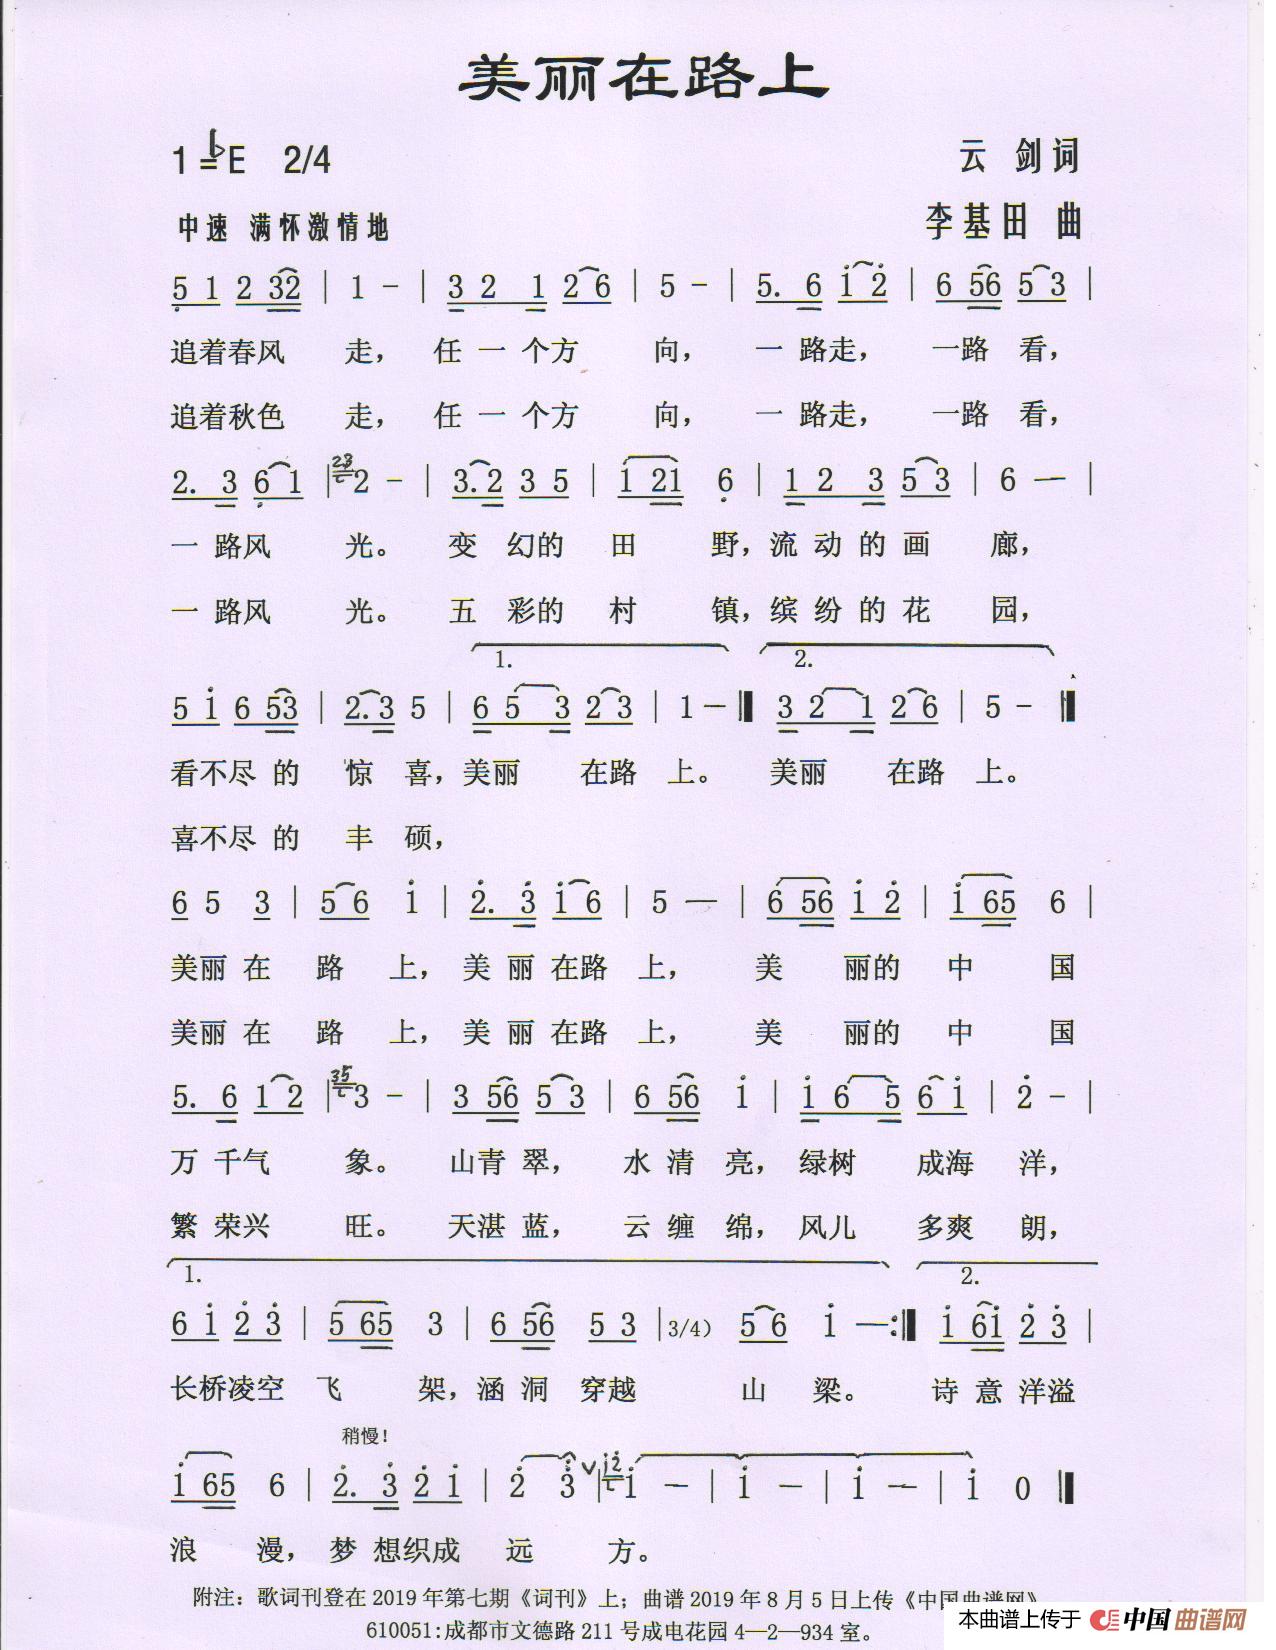 美丽在路上
1=♭E 2/4
云 剑词
中速 满怀激情地
李基田 曲
5 1 2 32 | 1 - | 3 2 1 2 6 | 5 - | 5. 6 1 2 | 6 56 5 3 |
追着春风 走， 任 一 个方 向， 一 路走， 一路 看，
追着秋色 走， 任 一 个方 向， 一 路走， 一路 看，
2. 3 6 1 | 23 2 - | 3. 2 3 5 | 1 21 6 | 1 2 3 5 3 | 6 — |
一 路风 光。 变 幻的 田 野，流 动 的 画 廊，
一 路风 光。 五 彩的 村 镇，缤 纷 的 花 园，
1. 2.
5 1 6 53 | 2. 3 5 | 6 5 3 2 3 | 1 — ‖ 3 2 1 2 6 | 5 - ‖
看不尽 的 惊 喜，美丽 在路 上。 美丽 在路 上。
喜不尽 的 丰 硕，
6 5 3 | 5 6 1 | 2. 3 1 6 | 5 — | 6 56 1 2 | 1 65 6 |
美丽 在 路 上， 美 丽 在路 上， 美 丽的 中 国
美丽 在 路 上， 美 丽 在路 上， 美 丽的 中 国
5. 6 1 2 | 35 3 - | 3 56 5 3 | 6 56 1 | 1 6 5 6 1 | 2 - |
万 千气 象。 山青 翠， 水 清 亮，绿树 成海 洋，
繁 荣兴 旺。 天湛 蓝， 云 缠 绵，风儿 多爽 朗，
1. 2.
6 1 2 3 | 5 65 3 | 6 56 5 3 |3/4） 5 6 1 —:‖ 1 61 2 3 |
长桥凌空 飞 架，涵 洞 穿越 山 梁。 诗 意 洋溢
稍慢！
1 65 6 | 2. 3 2 1 | 2 3 ∨ | 12 1 — | 1 — | 1 — | 1 0 ‖
浪 漫， 梦 想织成 远 方。
附注：歌词刊登在 2019 年第七期《词刊》上；曲谱 2019 年 8 月 5 日上传《中国曲谱网》
610051:成都市文德路 211 号成电花园 4—2—934 室。
本曲谱上传于 中国曲谱网